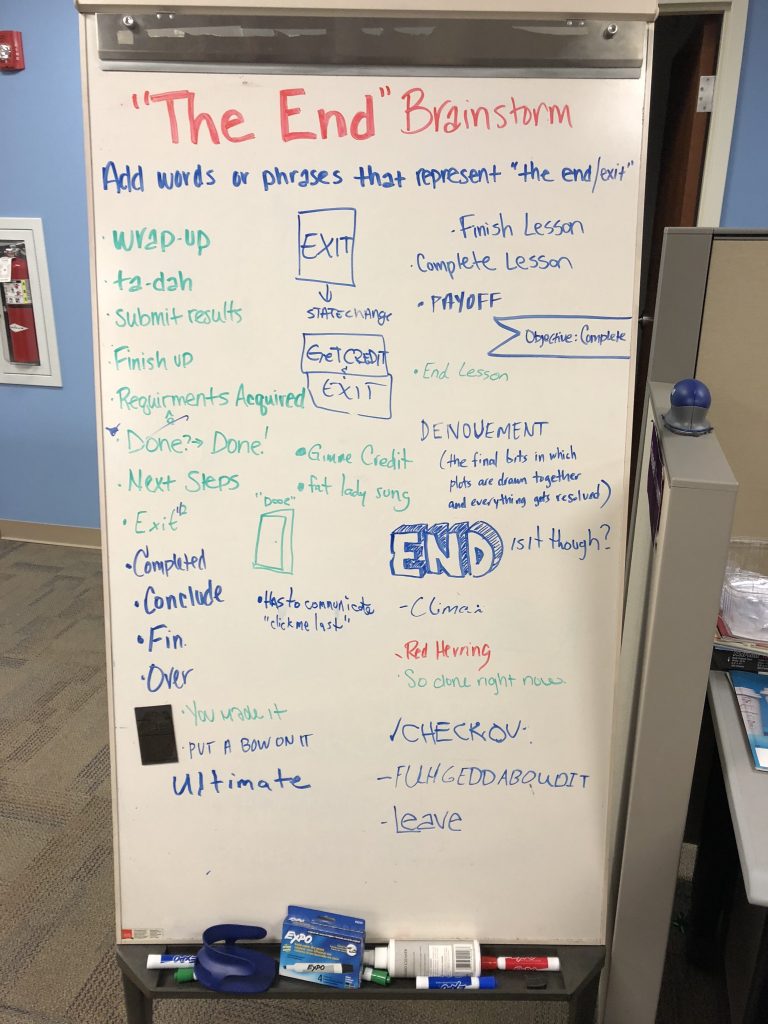 "The End" Brainstorm
Add words or phrases that represent "the end/exit"
· wrap-up
· ta-dah
· Submit results
· Finish up
· Requirments Acquired
· Done? → Done!
· Next Steps
· Exit
· Completed
· Conclude
· Fin.
· Over
· You made it
· PUT A BOW ON IT
Ultimate
EXIT
STATE CHANGE
GET CREDIT
EXIT
• Gimme Credit
• fat lady sung
"DOOR"
• Has to communicate
"click me last"
· Finish Lesson
· Complete Lesson
• PAYOFF
Objective: Complete
· End Lesson
DENOUEMENT
(the final bits in which
plots are drawn together
and everything gets resolved)
END Is it though?
- Climax
Red Herring
· So done right now
✓CHECK OU
- FUHGEDDABOUDIT
- Leave
EXPO
EXPO
4